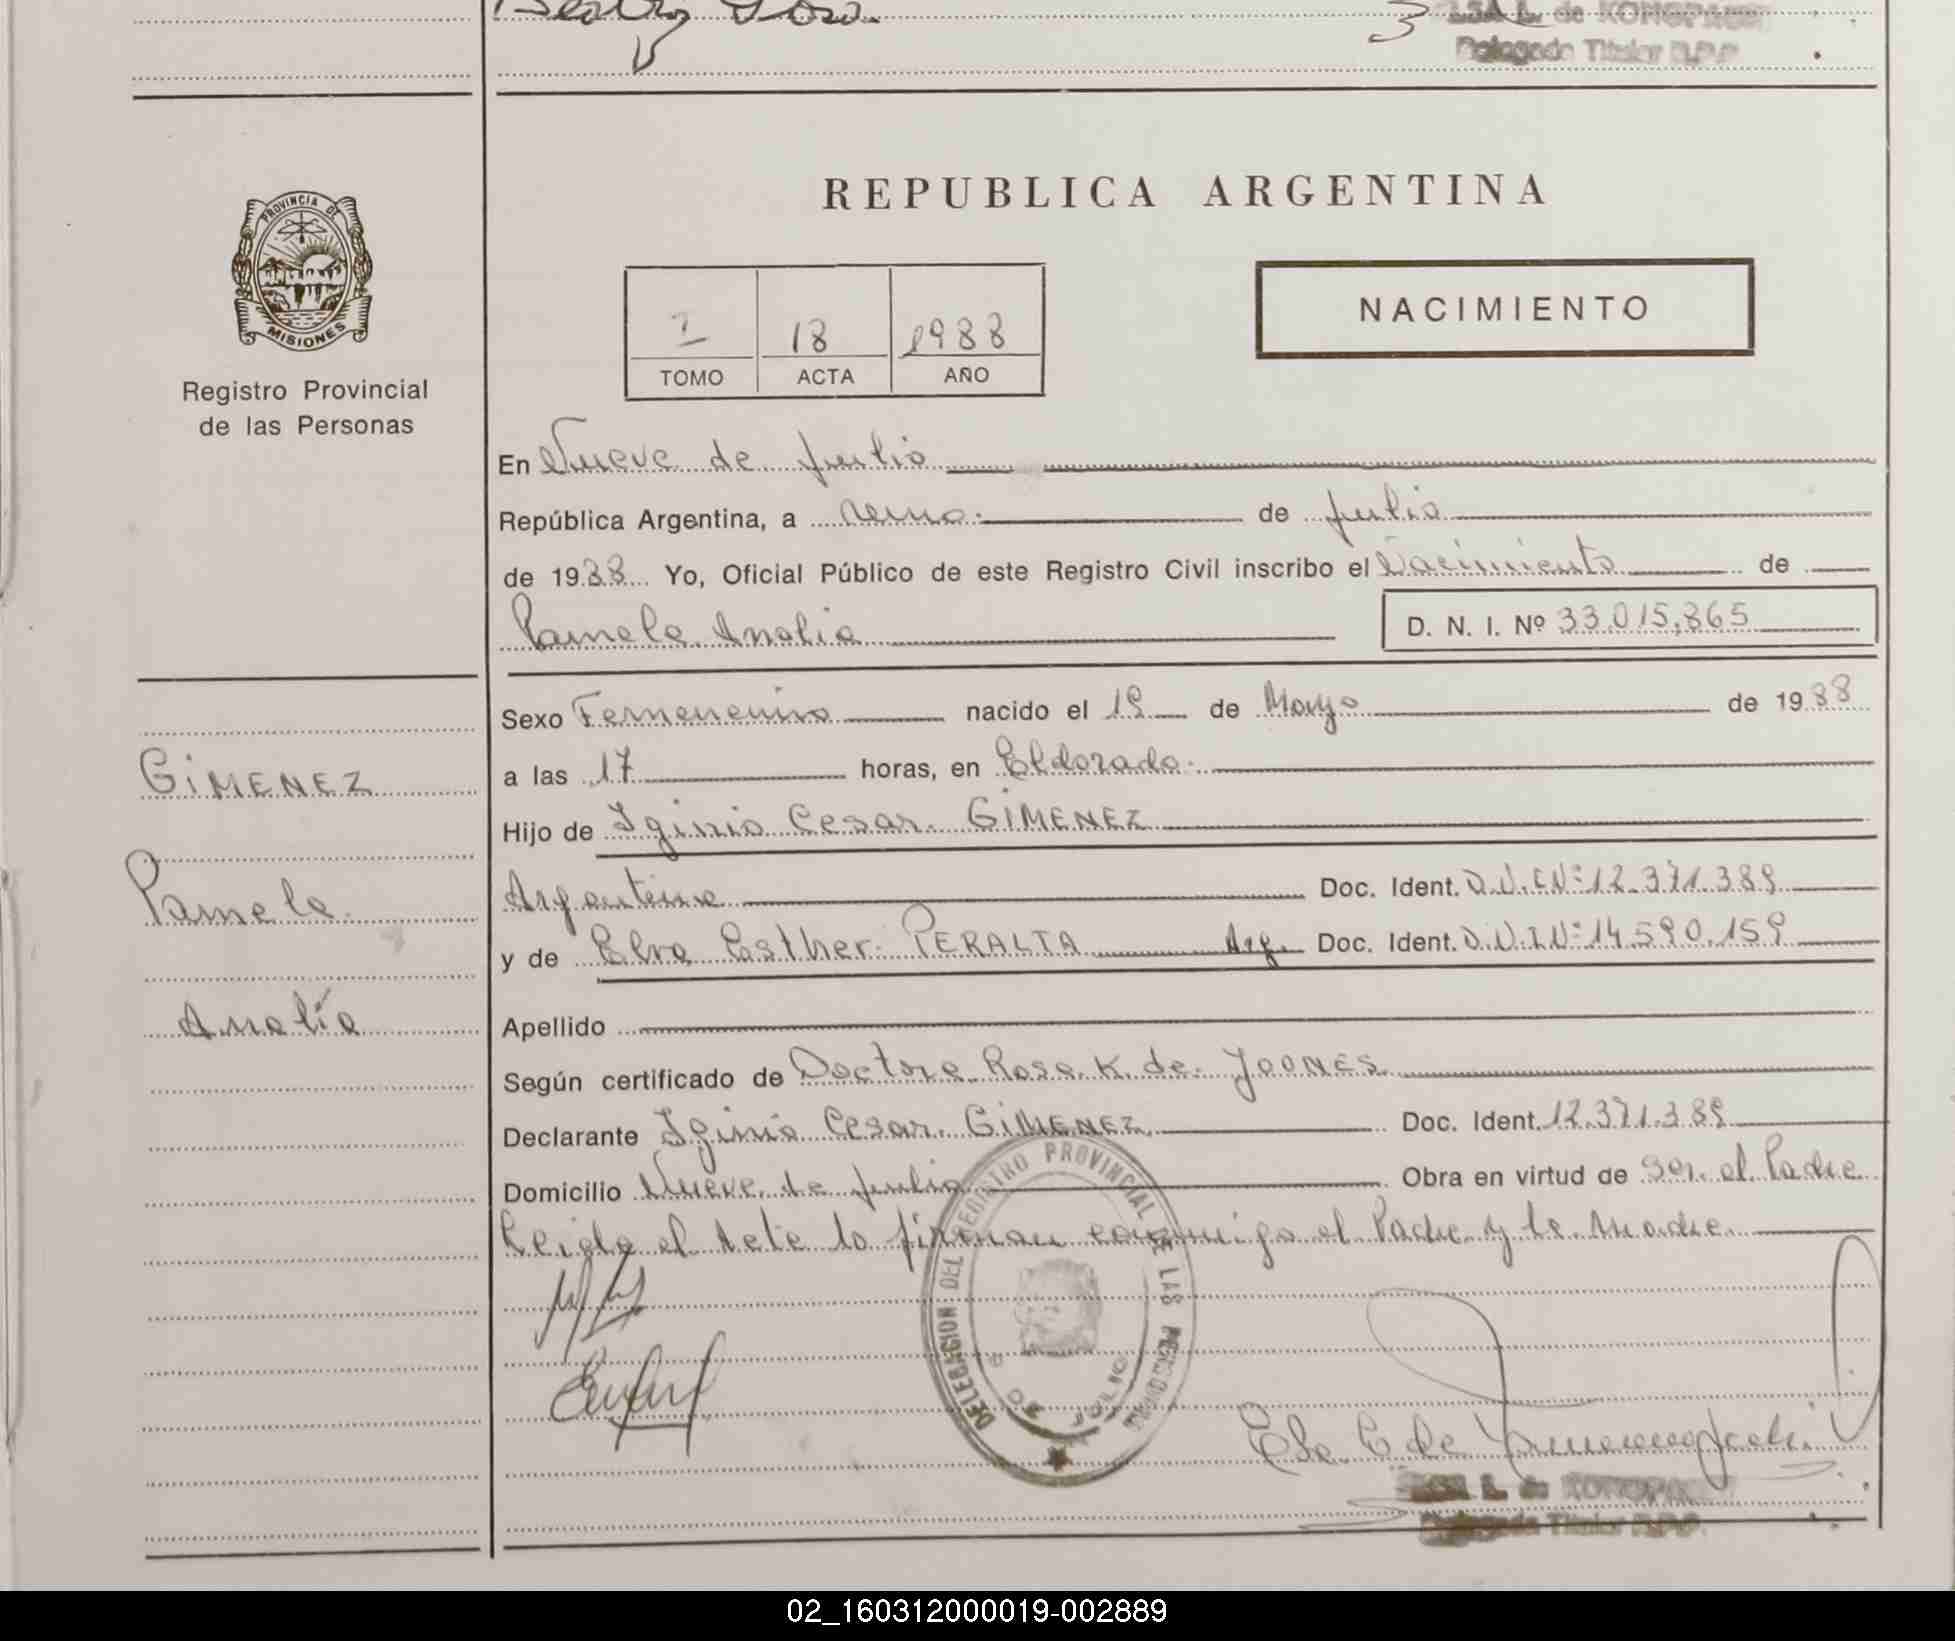 Beatriz Sosa.
3
ELSA L. de KONOPACKI
Delegada Titular R.P.P.
PROVINCIA DE
MISIONES
Registro Provincial
de las Personas
REPUBLICA ARGENTINA
NACIMIENTO
I 18 1988
TOMO ACTA AÑO
En Nueve de Julio
República Argentina, a de Julio
de 1988 Yo, Oficial Público de este Registro Civil inscribo el Nacimiento de
Pamela Analia D. N. I. Nº 33.015.865
Sexo Femenenino nacido el 19 de Mayo de 1988
a las 17 horas, en Eldorado.
GiMENEZ
Hijo de Iginio Cesar. GiMENEZ
Pamela.
Argentino Doc. Ident. D.N.I.Nº 12.371.389
y de Elva Esther. PERALTA Arg. Doc. Ident. D.N.I.Nº 14.590.159
Analía
Apellido
Según certificado de Doctora Rosa K. de JOONES.
Declarante Iginio Cesar. GiMENEZ Doc. Ident. 12.371.389
Domicilio Nueve de Julio Obra en virtud de ser el Padre
Leida el Acta la firman conmigo el Padre y la Madre.
DELEGACION DEL REGISTRO PROVINCIAL DE LAS PERSONAS
DE JULIO
ELSA L. de KONOPACKI
Delegada Titular R.P.P.
02_160312000019-002889